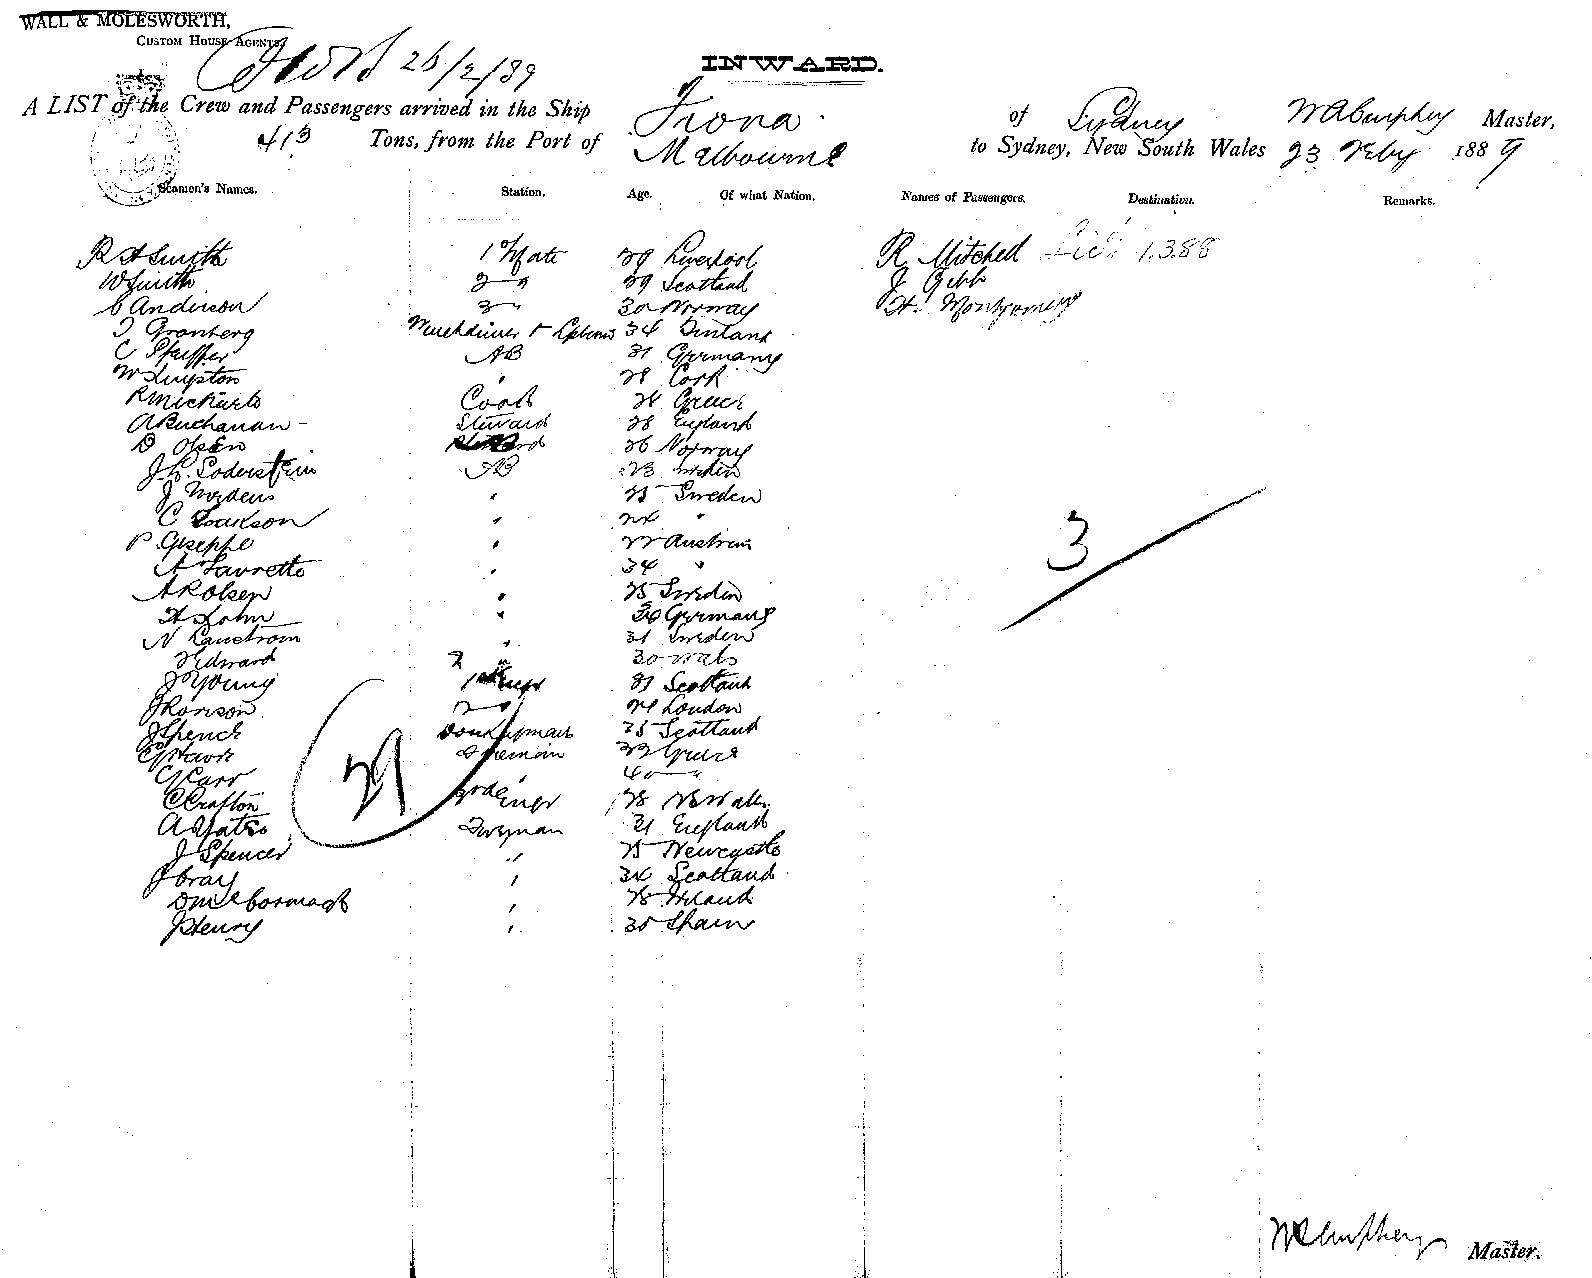 WALL & MOLESWORTH,
CUSTOM HOUSE AGENTS.
25/2/89
INWARD.
A LIST of the Crew and Passengers arrived in the Ship Fiona of Sydney Master,
413 Tons, from the Port of Melbourne to Sydney, New South Wales 23 Feby 1889
Seamen's Names. Station. Age. Of what Nation. Names of Passengers. Destination. Remarks.
R H Smith 1 Mate 29 Liverpool R. Mitchell 1.3.88
W Smith 2 " 29 Scotland J Gibb
C Anderson 3 " 30 Norway H. Montgomery
J Granberg 34 Finland
C Pfeiffer AB 31 Germany
W Lupton " 28 Cork
R Michaels Cook Greece
A Buchanan - Steward 28 England
B Olsen 26 Norway
J. L. Soderstein AB 23 Sweden
J Nordens " 25 Sweden
C Isakson " 24 "
P Gseppe " 22 Austria
A Favretto " 34 "
A R Olsen " 25 Sweden
H Lohm " 36 Germany
N Lanstrom " 31 Sweden
J Edward " 30 Wales
J Young 1st Engr 31 Scotland
J Rorison 2 " 29 London
J Spence Donkeyman 35 Scotland
Fireman 33 Greece
G Carr " 40 "
C Crafton 3rd Engr 28 N S Wales
A Yates Fireman 31 England
J Spencer " 25 Newcastle
J Gray " 34 Scotland
D McCormack " 28 Ireland
J Henry " 35 Spain
29
3
Master.